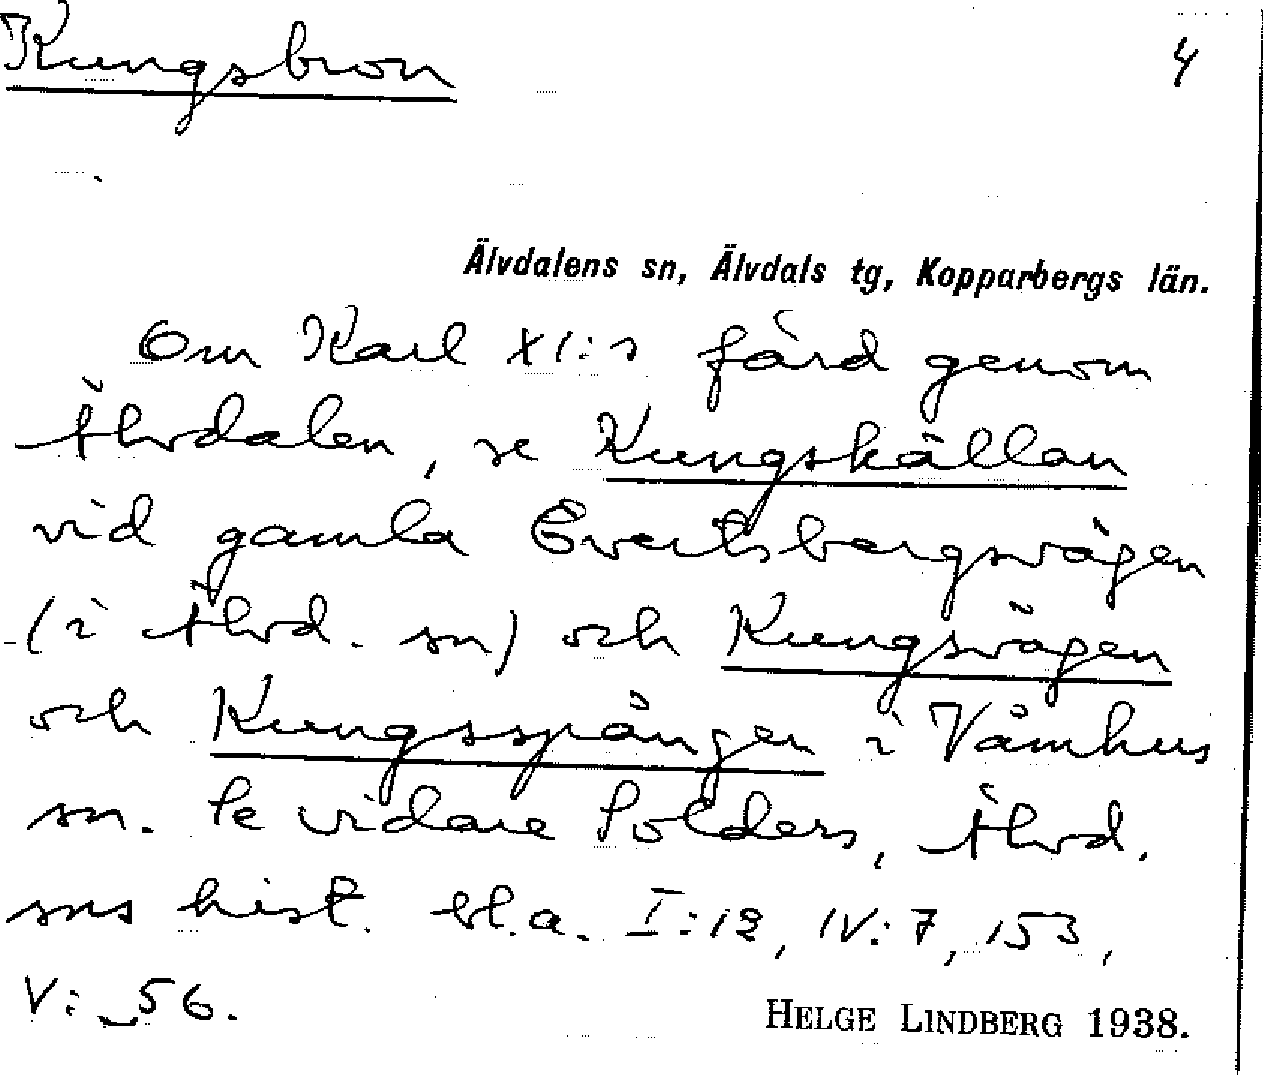 Kungsbron 4
Älvdalens sn, Älvdals tg, Kopparbergs län.
Om Karl XI:s färd genom
Älvdalen, se Kungskällan
vid gamla Evertsbergsvägen
(i Älvd. sn) och Kungsvägen
och Kungsspången i Våmhus
sn. Se vidare Solders, Älvd.
sns hist. bl.a. I:12, IV:7, 153,
V: 56.
HELGE LINDBERG 1938.